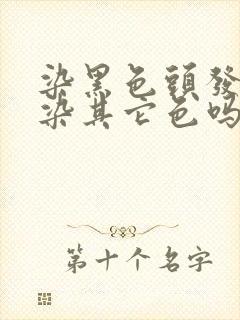 染黑色頭發
染其它色吗
第十个名字